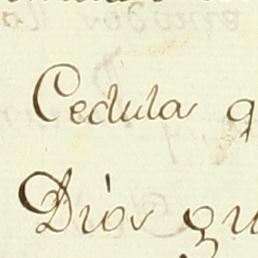 Cedula q
Dios gu